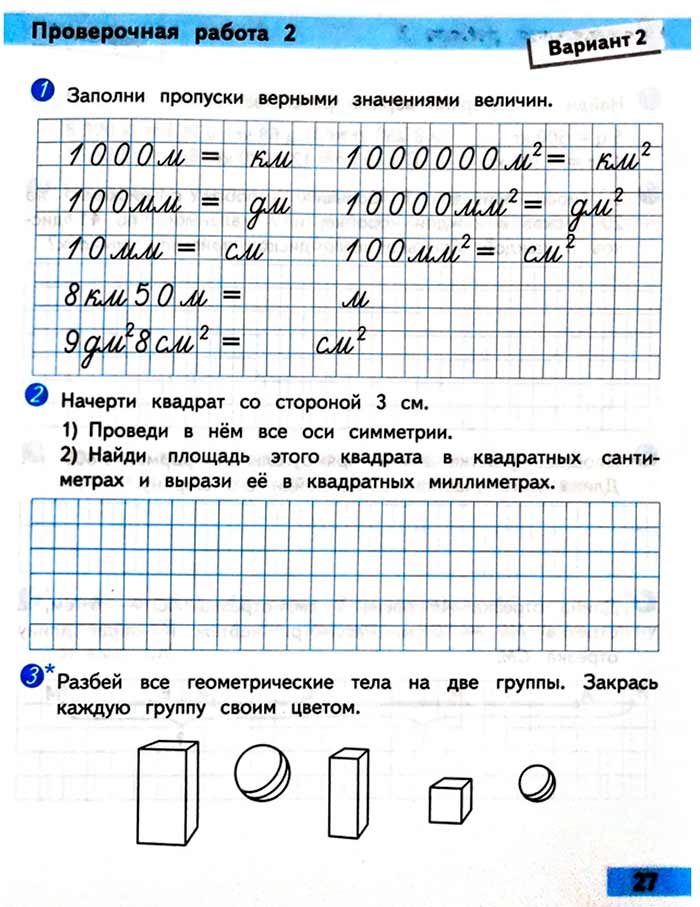 Проверочная работа 2
Вариант 2
1 Заполни пропуски верными значениями величин.
1000м = км 1000000м² = км²
100мм = дм 10000мм² = дм²
10мм = см 100мм² = см²
8км50м = м
9дм²8см² = см²
2 Начерти квадрат со стороной 3 см.
1) Проведи в нём все оси симметрии.
2) Найди площадь этого квадрата в квадратных санти-
метрах и вырази её в квадратных миллиметрах.
3* Разбей все геометрические тела на две группы. Закрась
каждую группу своим цветом.
27